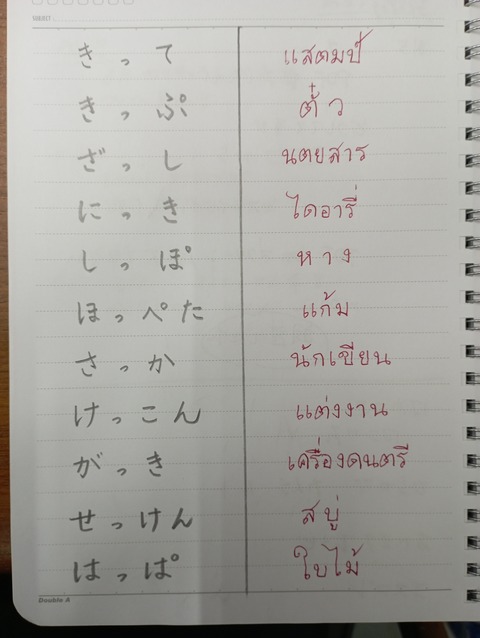 きって แสตมป์
きっぷ ตั๋ว
ざっし นตยสาร
にっき ไดอารี่
しっぽ หาง
ほっぺた แก้ม
さっか นักเขียน
けっこん แต่งงาน
がっき เครื่องดนตรี
せっけん สบู่
はっぱ ใบไม้
Double A